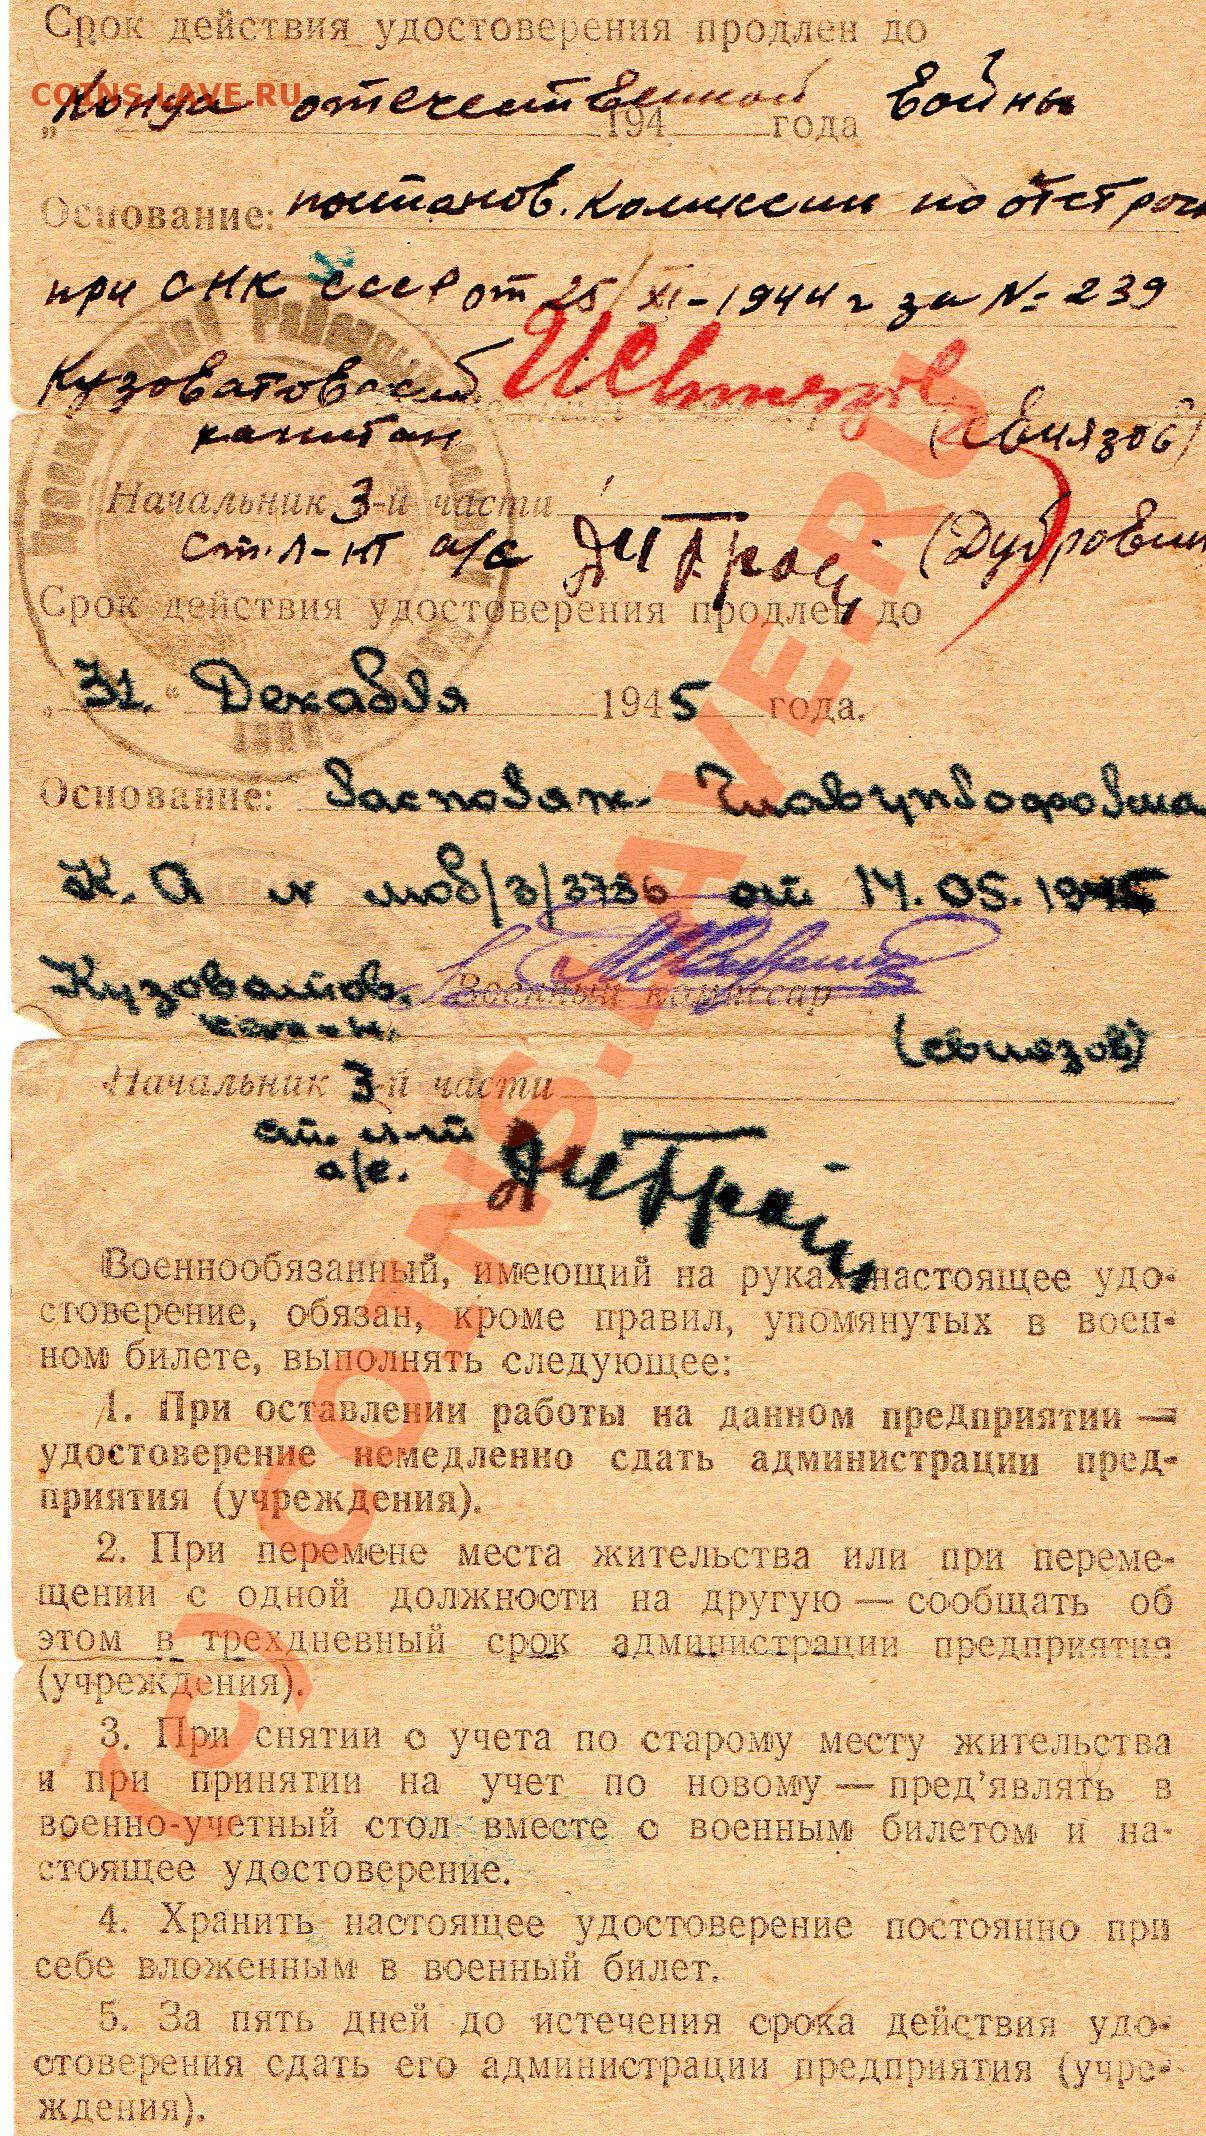 Срок действия удостоверения продлен до
COINS.LAVE.RU
Конца отечественной войны
„ 194 года
Основание: постанов. комиссии по отстроч
при СНК СССР от 25/XI-1944 г за № 239
Кузоватовский
капитан (Свиязов)
Начальник 3-й части
ст. л-нт а/с (Дубровин
Срок действия удостоверения продлен до
„ 31. “ Декабря 1945 года.
Основание:
К. А моб/3/3736 от 14.05.1945
Кузоватов. Военный комиссар
(свиязов)
Начальник 3-й части
ст. л-нт
а/с.
Военнообязанный, имеющий на руках настоящее удо-
стоверение, обязан, кроме правил, упомянутых в воен-
ном билете, выполнять следующее:
1. При оставлении работы на данном предприятии —
удостоверение немедленно сдать администрации пред-
приятия (учреждения).
2. При перемене места жительства или при переме-
щении с одной должности на другую — сообщать об
этом в трехдневный срок администрации предприятия
(учреждения).
3. При снятии с учета по старому месту жительства
и при принятии на учет по новому — пред'являть в
военно-учетный стол вместе с военным билетом и на-
стоящее удостоверение.
4. Хранить настоящее удостоверение постоянно при
себе вложенным в военный билет.
5. За пять дней до истечения срока действия удо-
стоверения сдать его администрации предприятия (учре-
ждения).
(c) COINS.LAVE.RU